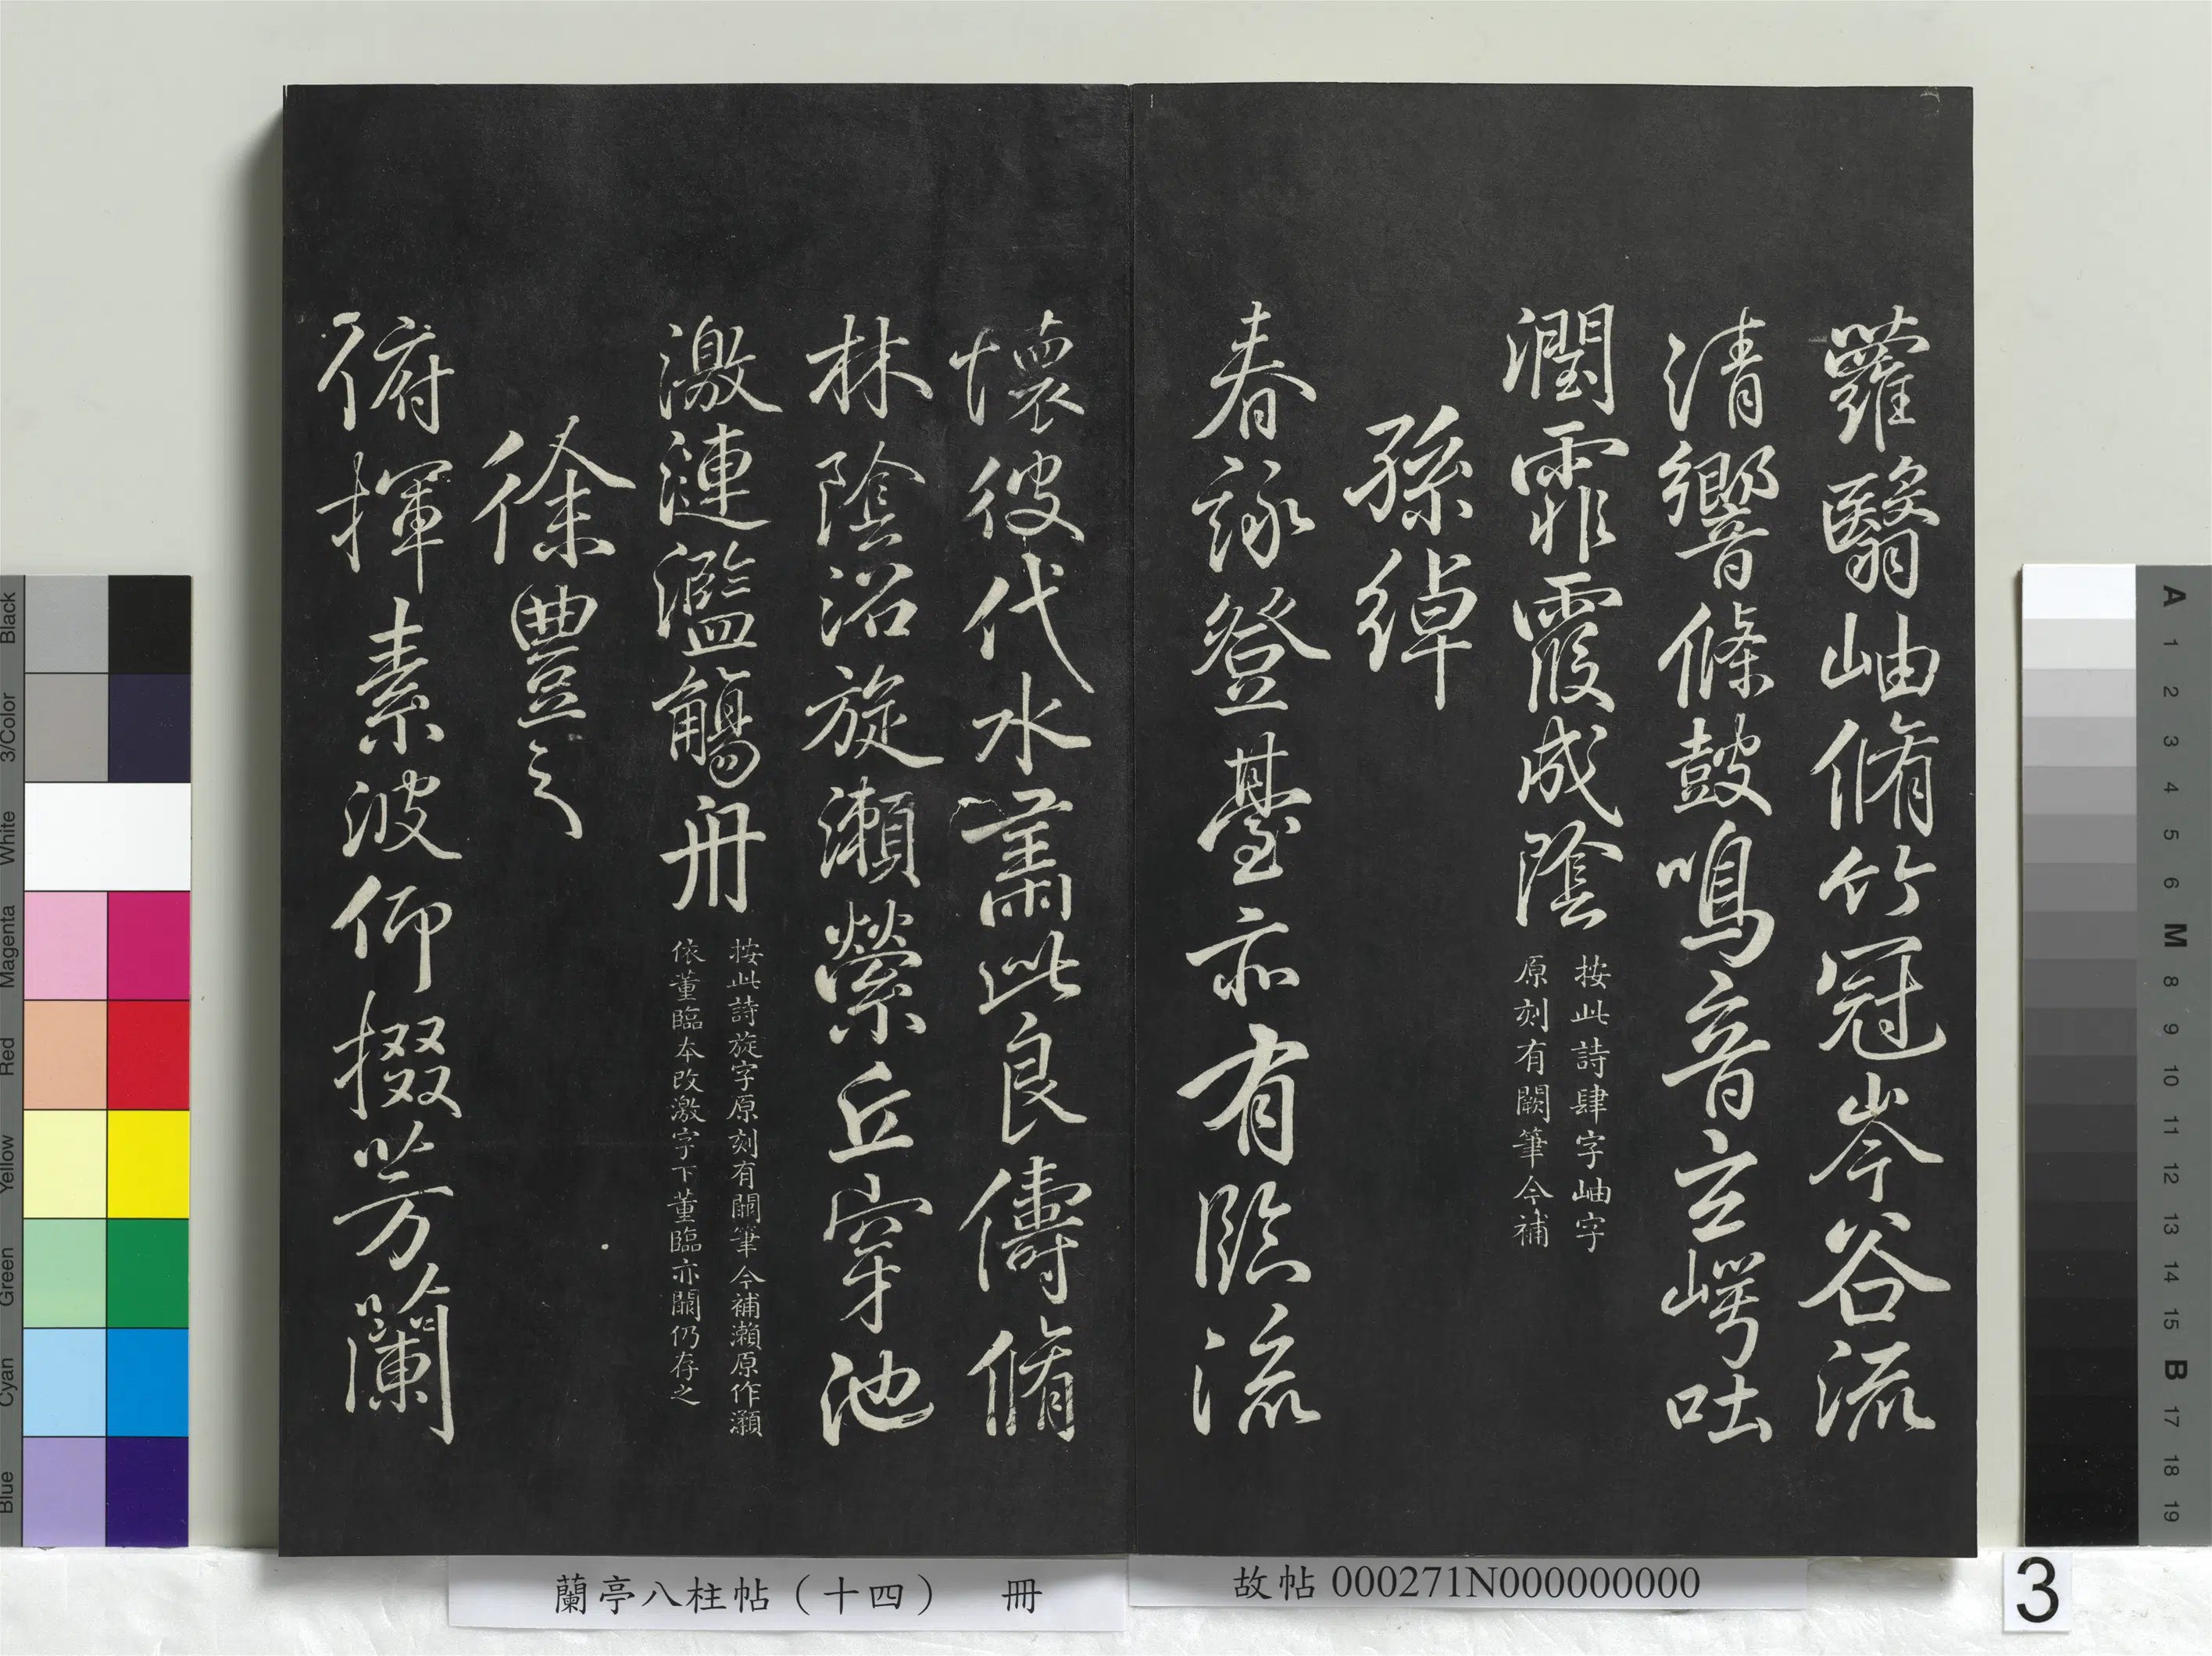 蘿翳岫脩竹冠岑谷流
清響條鼓鳴音玄崿吐
潤霏霞成陰
按此詩肆字岫字
原刻有闕筆今補
孫綽
春詠登臺亦有臨流
懷彼伐水肅此良儔脩
林陰沼旋瀨縈丘穿池
激漣濫觴舟
按此詩旋字原刻有闕筆今補瀨原作瀬
依董臨本改激字下董臨亦闕仍存之
徐豐之
俯揮素波仰掇芳蘭
蘭亭八柱帖（十四） 冊
故帖 000271N000000000
3
Black
3/Color
White
Magenta
Red
Yellow
Green
Cyan
Blue
A
1
2
3
4
5
6
M
8
9
10
11
12
13
14
15
B
17
18
19